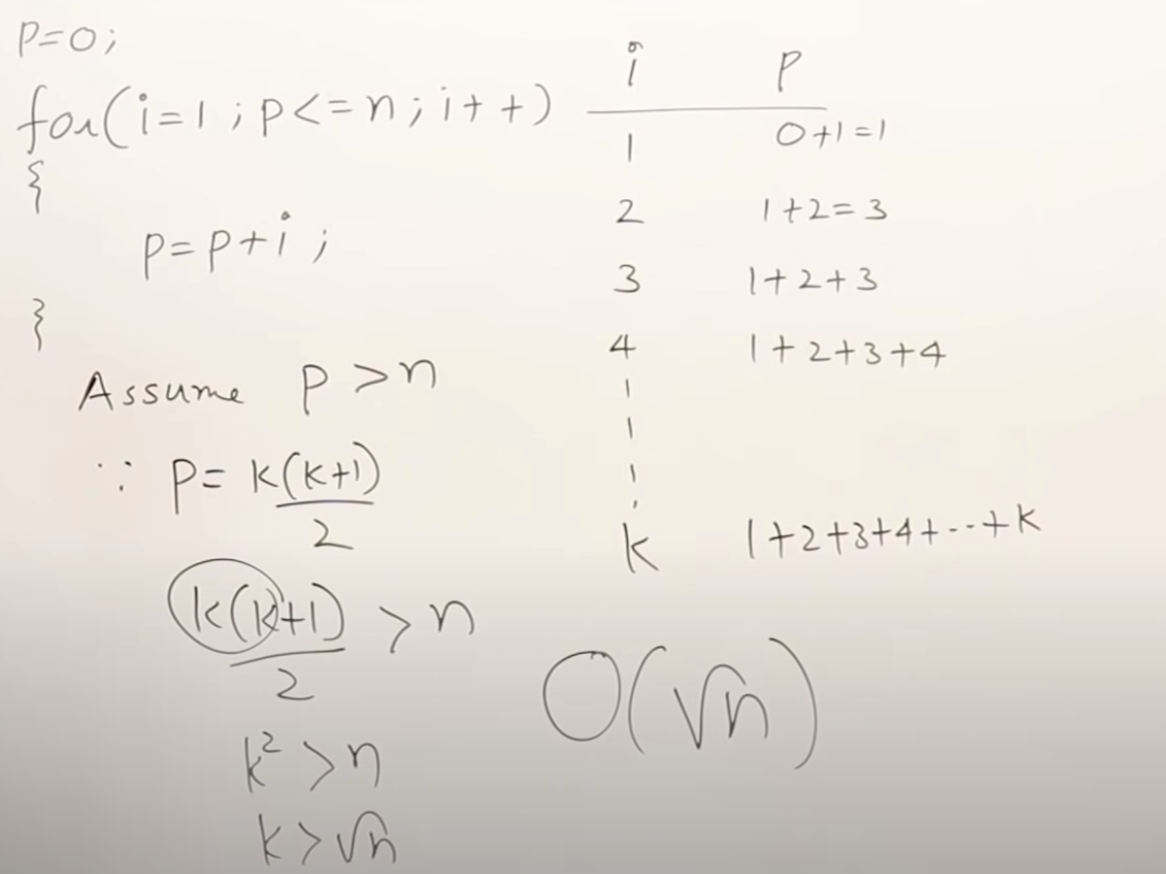 p=0;
for(i=1;p<=n;i++)
{
p=p+i;
}
Assume p>n
∵ p= k(k+1)/2
k(k+1)/2 > n
k²>n
k>√n
i p
1 0+1=1
2 1+2=3
3 1+2+3
4 1+2+3+4
k 1+2+3+4+--+k
O(√n)